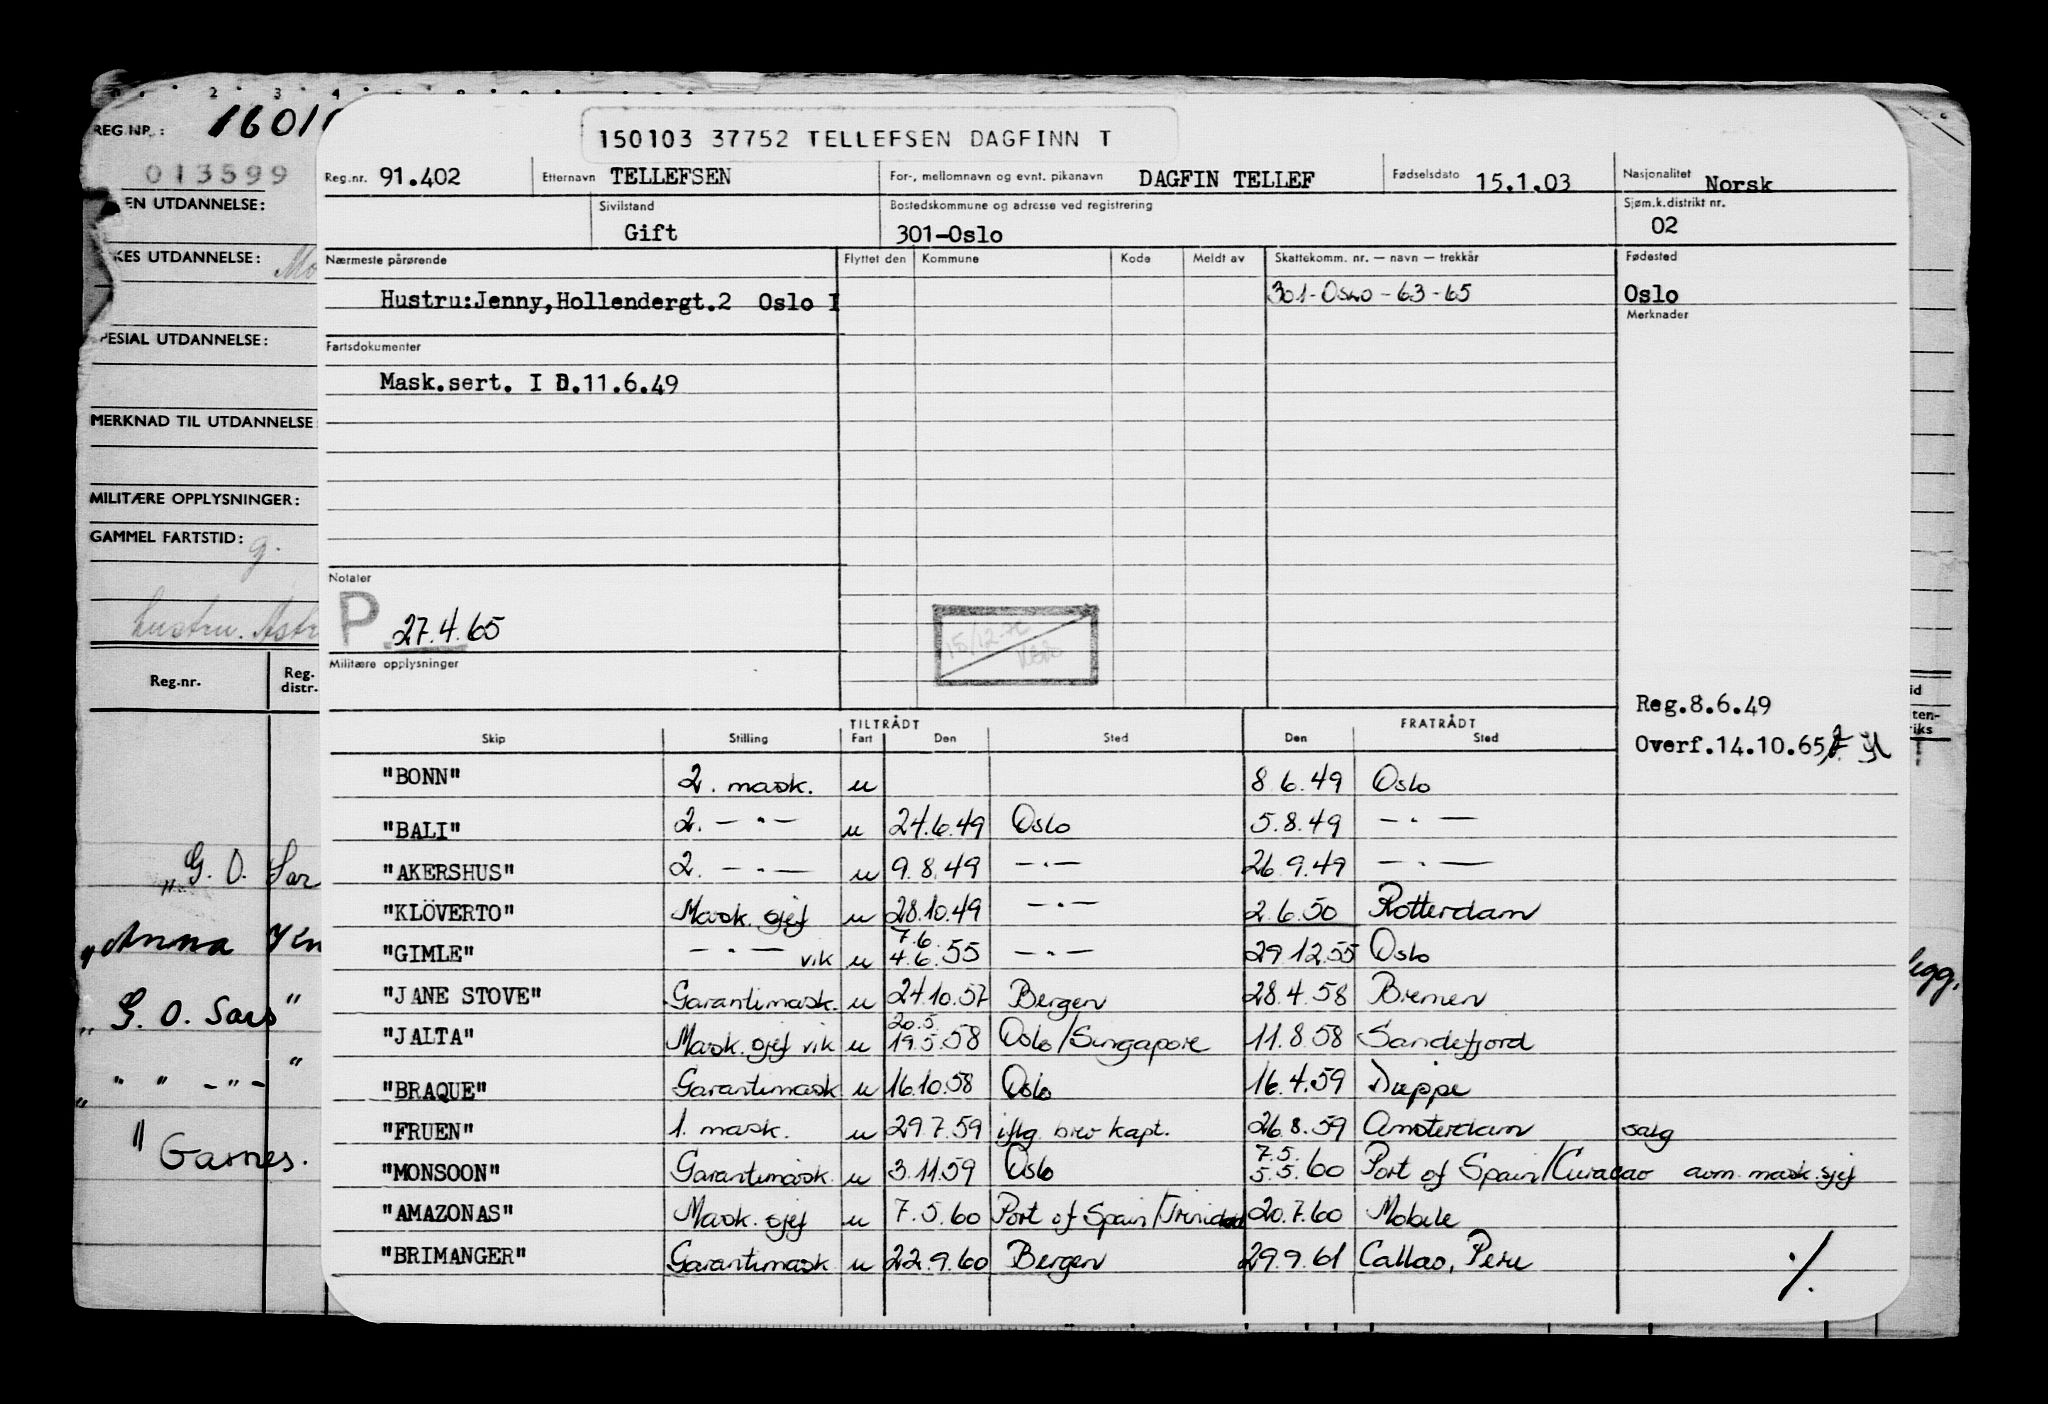 2 3 4
REG.NR.: 1601
013599
EN UTDANNELSE:
KES UTDANNELSE: Mo
PESIAL UTDANNELSE:
MERKNAD TIL UTDANNELSE
MILITÆRE OPPLYSNINGER:
GAMMEL FARTSTID: g.
hustru. Astr
Reg.nr. Reg. distr.
"G. O. Sar
"Anna
"G. O. Sars"
" " -"- "
" Garnes.
150103 37752 TELLEFSEN DAGFINN T
Reg.nr. 91.402 Etternavn TELLEFSEN For-, mellomnavn og evnt. pikanavn DAGFIN TELLEF Fødselsdato 15.1.03 Nasjonalitet Norsk
Sivilstand Gift Bostedskommune og adresse ved registrering 301-Oslo Sjøm.k.distrikt nr. 02
Nærmeste pårørende Flyttet den Kommune Kode Meldt av Skattekomm. nr. — navn — trekkår Fødested
Hustru:Jenny,Hollendergt.2 Oslo I 301-Oslo-63-65 Oslo
Merknader
Fartsdokumenter
Mask.sert. I D.11.6.49
Notater
P. 27.4.65
15/12-70
Militære opplysninger
Reg.8.6.49
Overf.14.10.65
TILTRÅDT FRATRÅDT
Skip Stilling Fart Den Sted Den Sted
"BONN" 2. mask. u 8.6.49 Oslo
"BALI" 2. — " — u 24.6.49 Oslo 5.8.49 — " —
"AKERSHUS" 2. — " — u 9.8.49 — " — 26.9.49 — " —
"KLÖVERTO" Mask. sjef u 28.10.49 — " — 2.6.50 Rotterdam
"GIMLE" — " — vik u 7.6. 4.6.55 — " — 29.12.55 Oslo
"JANE STOVE" Garantimask. u 24.10.57 Bergen 28.4.58 Bremen
"JALTA" Mask. sjef vik u 20.5. 19.5.58 Oslo/Singapore 11.8.58 Sandefjord
"BRAQUE" Garantimask u 16.10.58 Oslo 16.4.59 Dieppe
"FRUEN" 1. mask. u 29.7.59 iflg. brev kapt. 26.8.59 Amsterdam salg
"MONSOON" Garantimask. u 3.11.59 Oslo 7.5. 5.5.60 Port of Spain/Curacao avm. mask.sjef
"AMAZONAS" Mask. sjef u 7.5.60 Port of Spain/Trinidad 20.7.60 Mobile
"BRIMANGER" Garantimask u 22.9.60 Bergen 29.9.61 Callao, Peru
./.